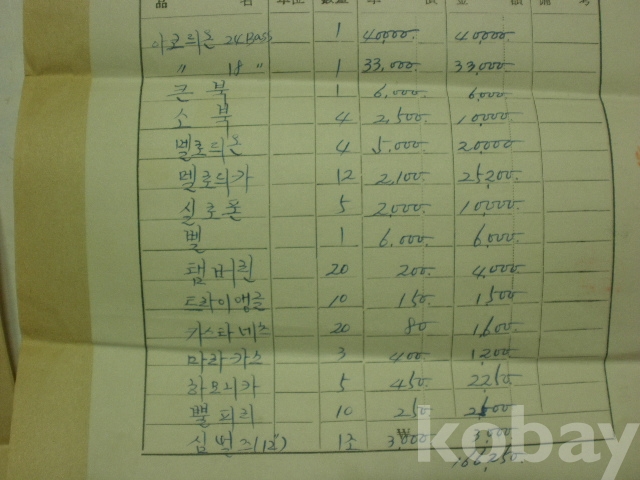 品 名 單位 數量 單 價 金 額 備 考
아코디온 24 BASS 1 40,000. 40,000.
" 18 " 1 33,000. 33,000.
큰 북 1 6,000. 6,000.
소 북 4 2,500. 10,000
멜로디온 4 5,000. 20,000
멜로디카 12 2,100. 25,200.
실로폰 5 2,000. 10,000.
벨 1 6,000. 6,000.
탬버린 20 200. 4,000.
트라이앵글 10 150. 1,500
카스타네츠 20 80 1,600.
마라카스 3 400. 1,200
하모니카 5 450. 2,250
뿔피리 10 250
심벌즈(12") 1조 3,000 3,000
166,250.
kobay